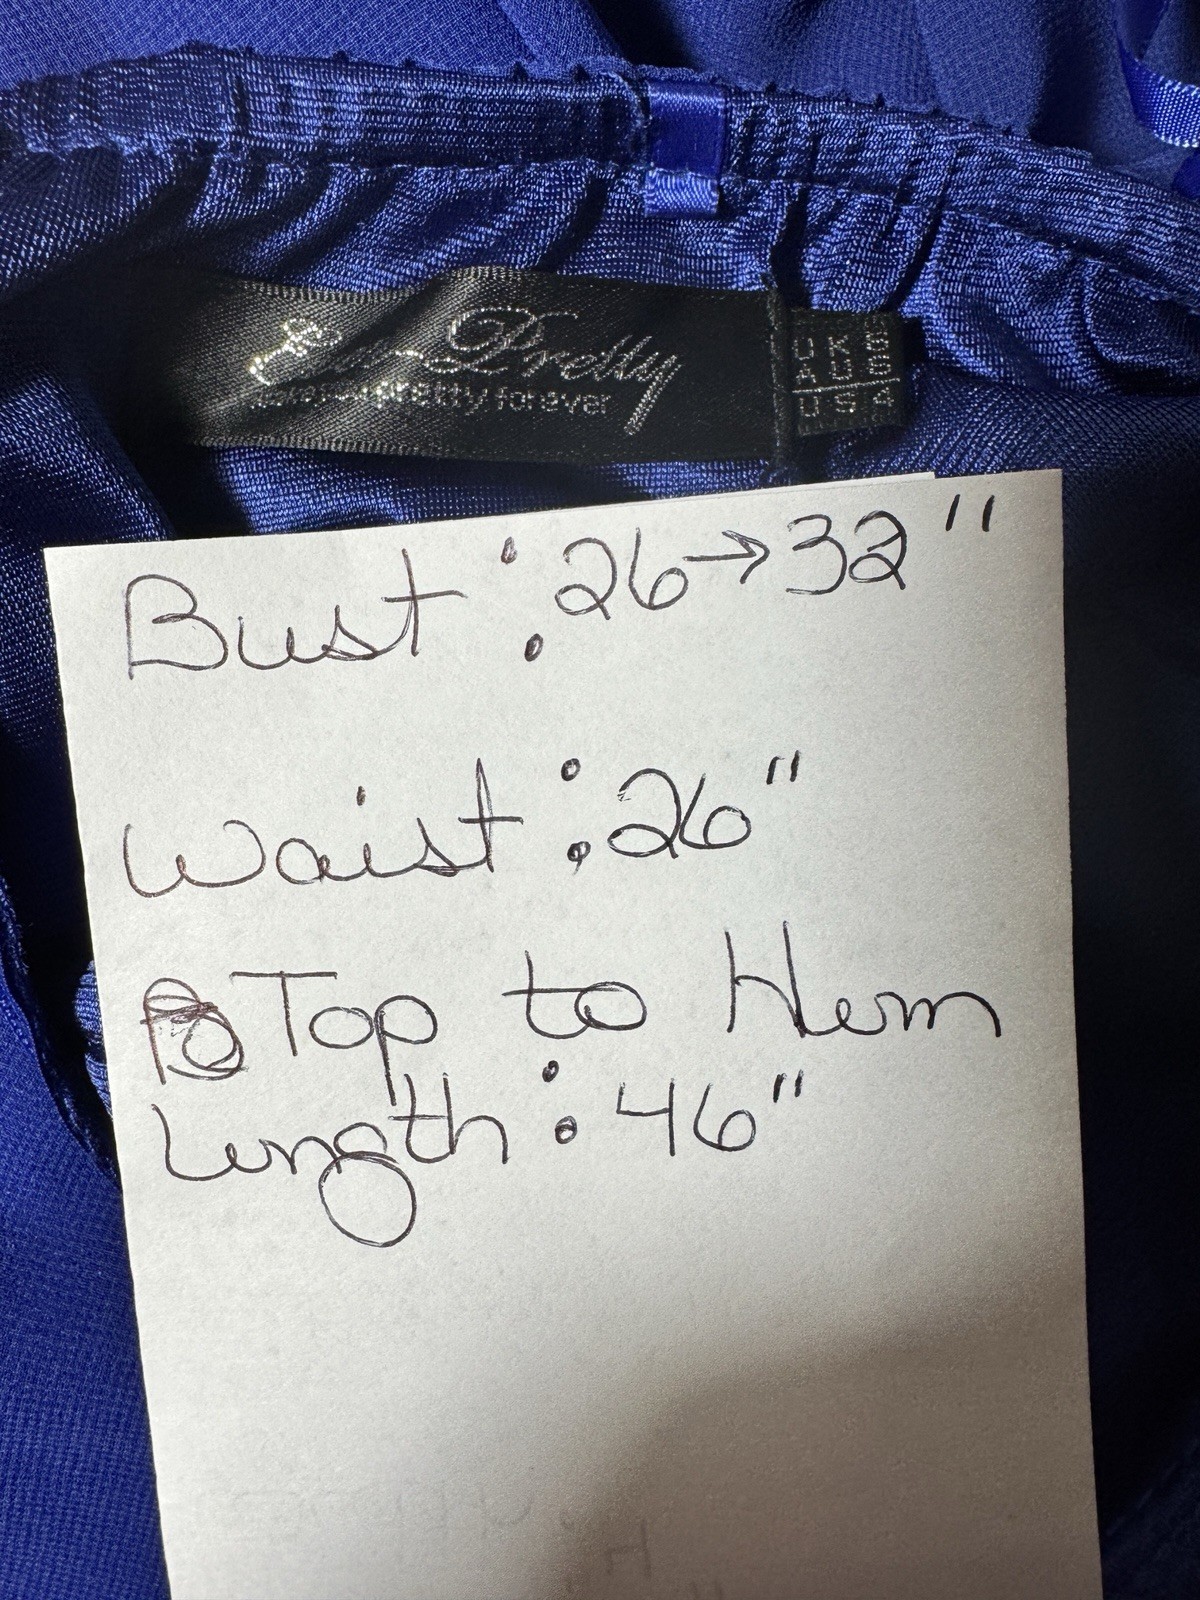 Ever-Pretty
pretty forever
UK 8
AUS 8
USA 4
Bust : 26→32"
Waist : 26"
Top to Hem
Length : 46"